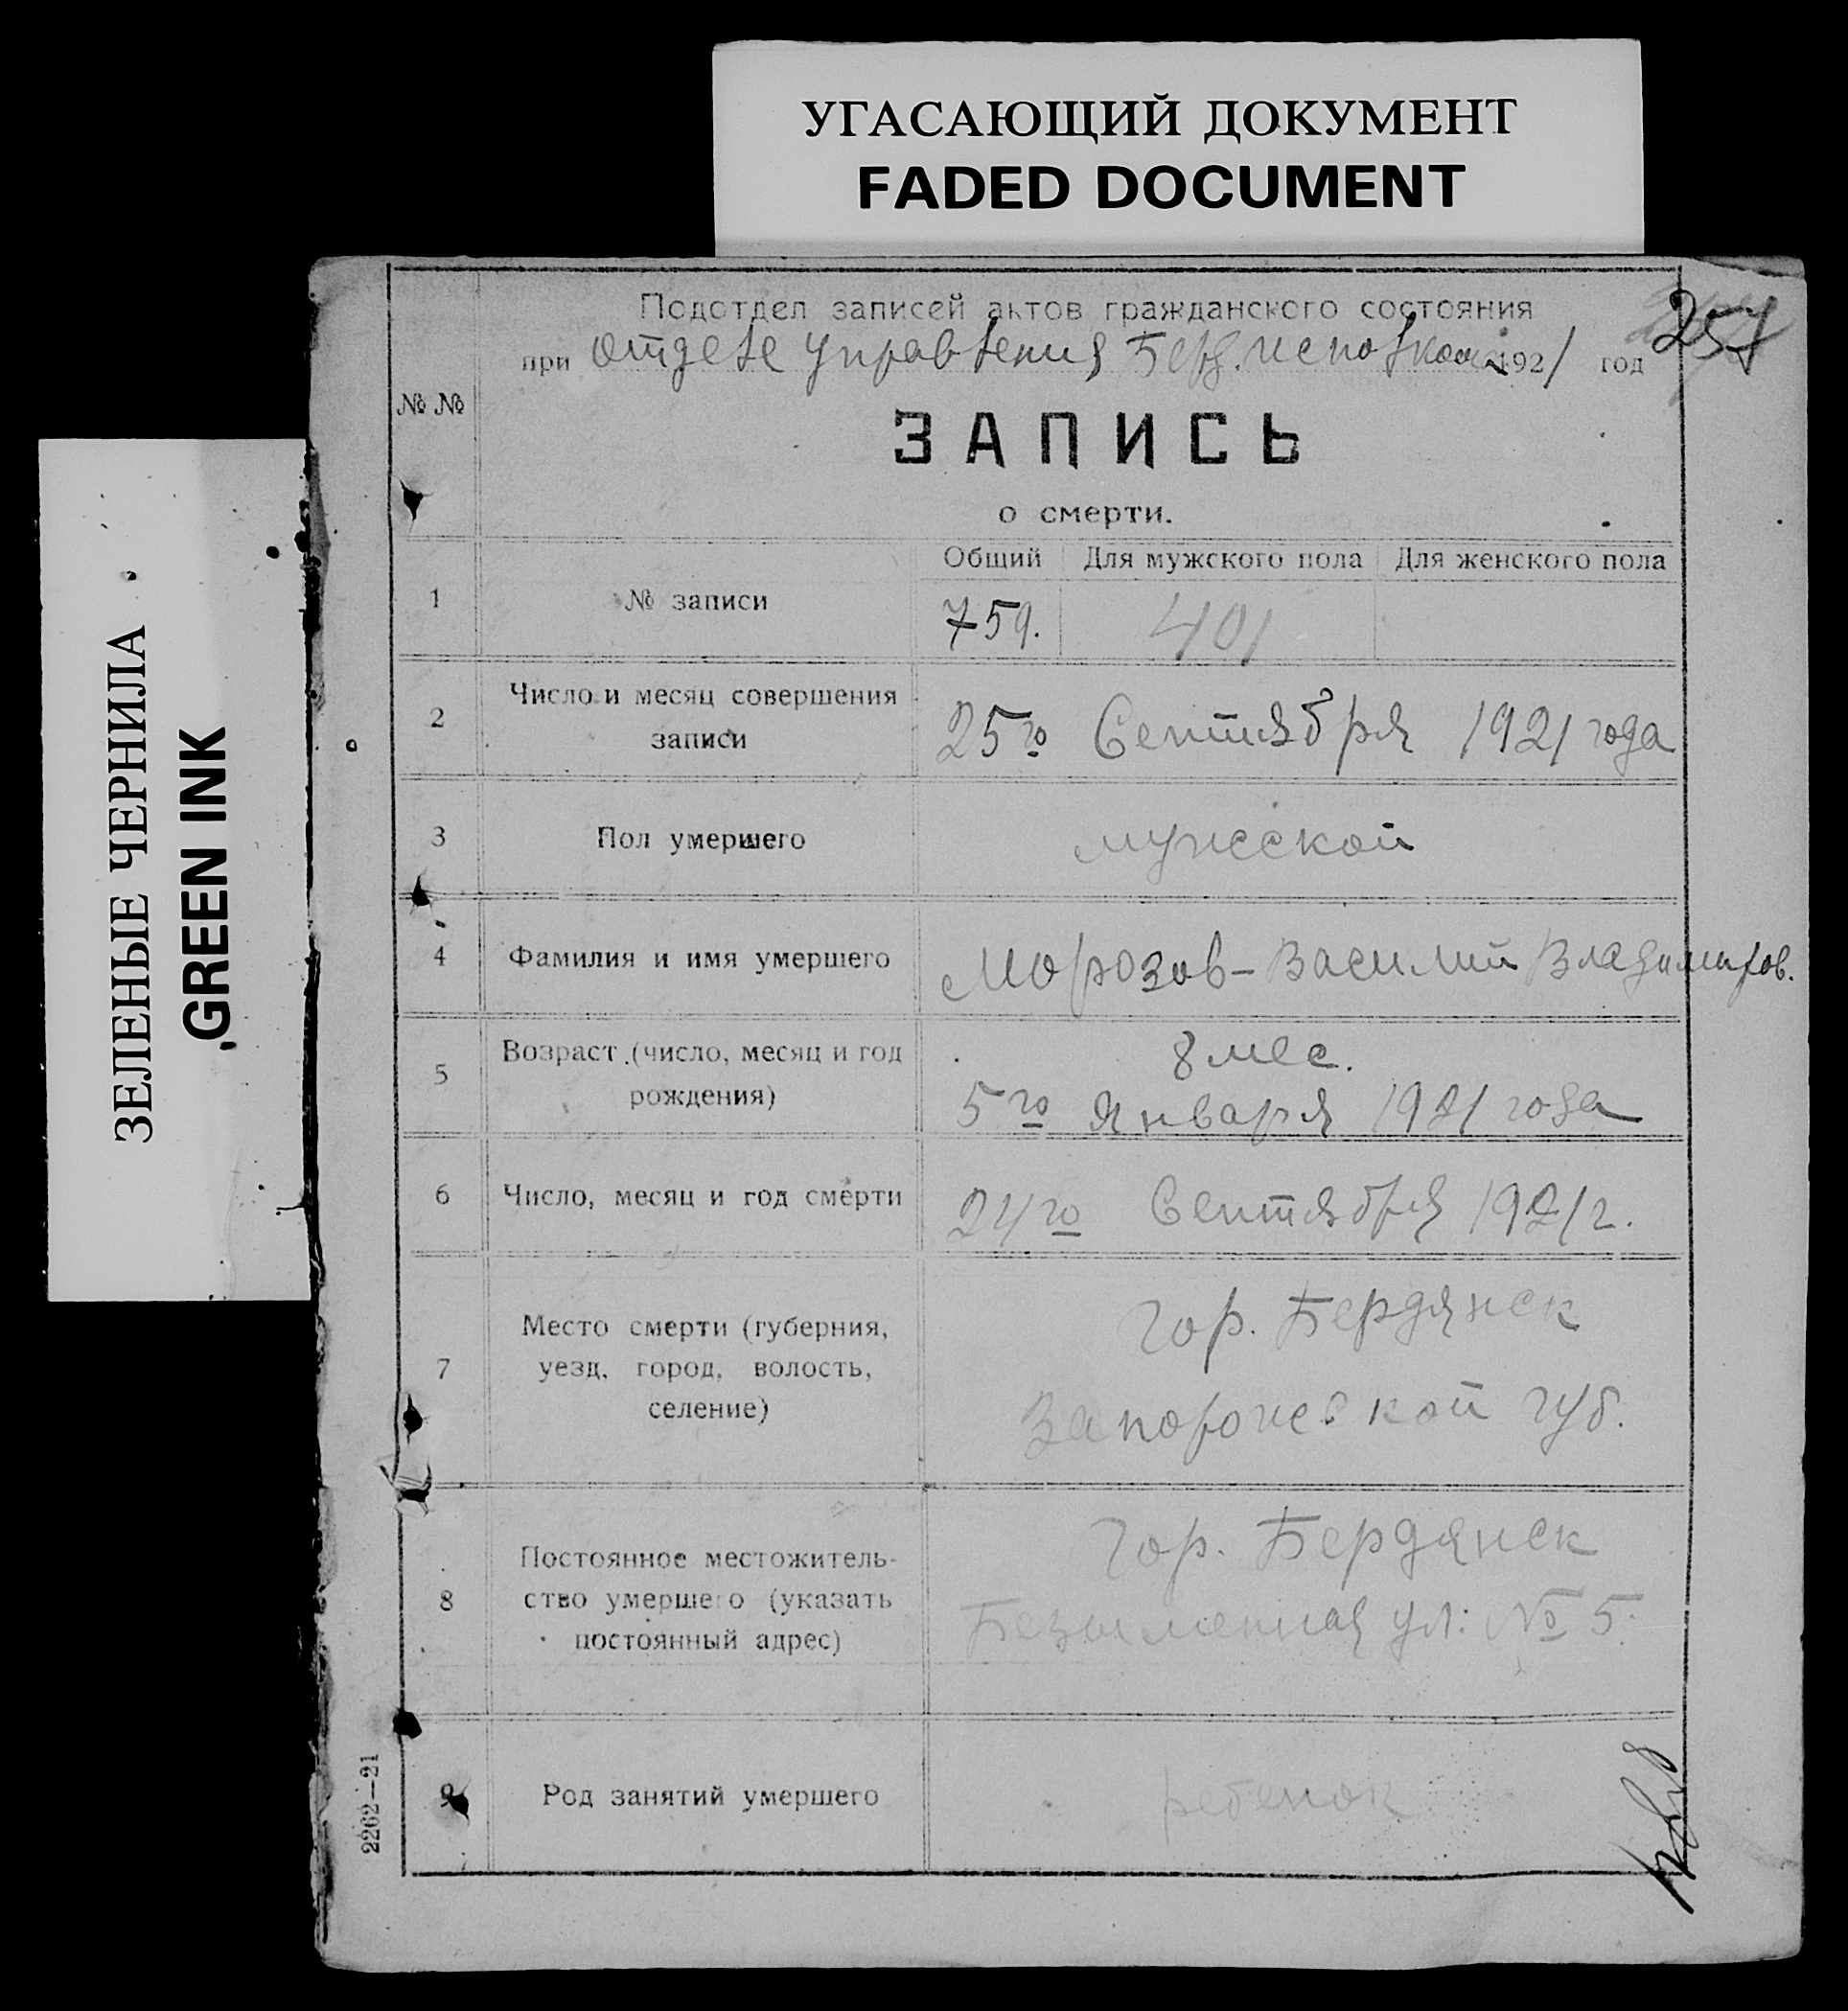 УГАСАЮЩИЙ ДОКУМЕНТ
FADED DOCUMENT
ЗЕЛЕНЫЕ ЧЕРНИЛА
GREEN INK
257
Подотдел записей актов гражданского состояния
при отделе управления Берд. исполкома 1921 год
№ №
ЗАПИСЬ
о смерти.
Общий Для мужского пола Для женского пола
1 № записи 759. 401
2 Число и месяц совершения
записи
25го Сентября 1921 года
3 Пол умершего мужской
4 Фамилия и имя умершего Морозов - Василий Владимиров.
5 Возраст (число, месяц и год
рождения)
8 мес.
5го Января 1921 года
6 Число, месяц и год смерти 24го Сентября 1921 г.
7 Место смерти (губерния,
уезд, город, волость,
селение)
гор. Бердянск
Запорожской губ.
8 Постоянное местожитель-
ство умершего (указать
постоянный адрес)
гор. Бердянск
Безыменная ул: № 5.
9 Род занятий умершего ребенок
2262—21